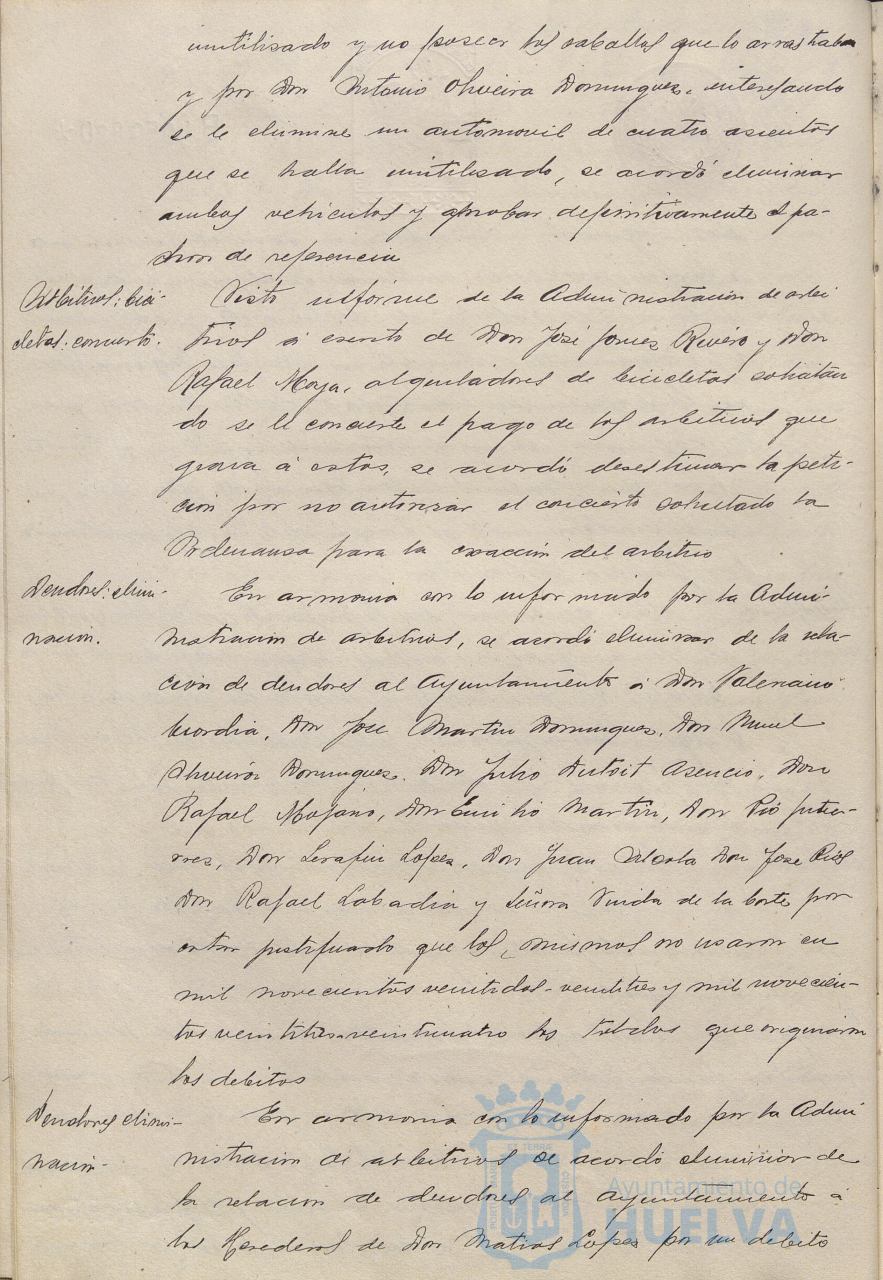 inutilisado y no poseer los caballos que lo arrastraban
y por Don Antonio Oliveira Dominguez, interesando
se le elimine un automovil de cuatro asientos
que se halla inutilisado, se acordó eliminar
ambos vehiculos y aprobar definitivamente el pa-
dron de referencia
Arbitrios: bici-
cletas: concierto.
Visto informe de la Administracion de arbi
trios á escrito de Don José Gomez Rivero y Don
Rafael Moya, alquiladores de bicicletas solicitan
do se le concierte el pago de los arbitrios que
grava á estas, se acordó desestimar la peti-
cion por no autorizar el concierto solicitado la
Ordenansa para la exacción del arbitrio
Deudores: elimi-
nacion.
En armonia con lo informado por la Admi-
nistracion de arbitrios, se acordó eliminar de la rela-
cion de deudores al Ayuntamiento á Don Valeriano
Don Jose Martin Dominguez, Don
Oliveira Dominguez. Don Julio Dutoit Asencio, Don
Rafael Mojano, Don Emilio Martin, Don Pio Gutie-
rres, Don Serafin Lopez, Don Juan Don Jose Rios
Don Rafael Labadia y Señora Viuda de la Corte por
estar justificado que los mismos no usaron en
mil novecientos veintidos-veintitres y mil novecien-
tos veintitres-veinticuatro los toldos que originaron
los debitos
Deudores elimi-
nacion-
En armonia con lo informado por la Admi
nistracion de arbitrios se acordó eliminar de
la relacion de deudores al Ayuntamiento á
los Herederos de Don Matias Lopez por un debito
Ayuntamiento de
HUELVA